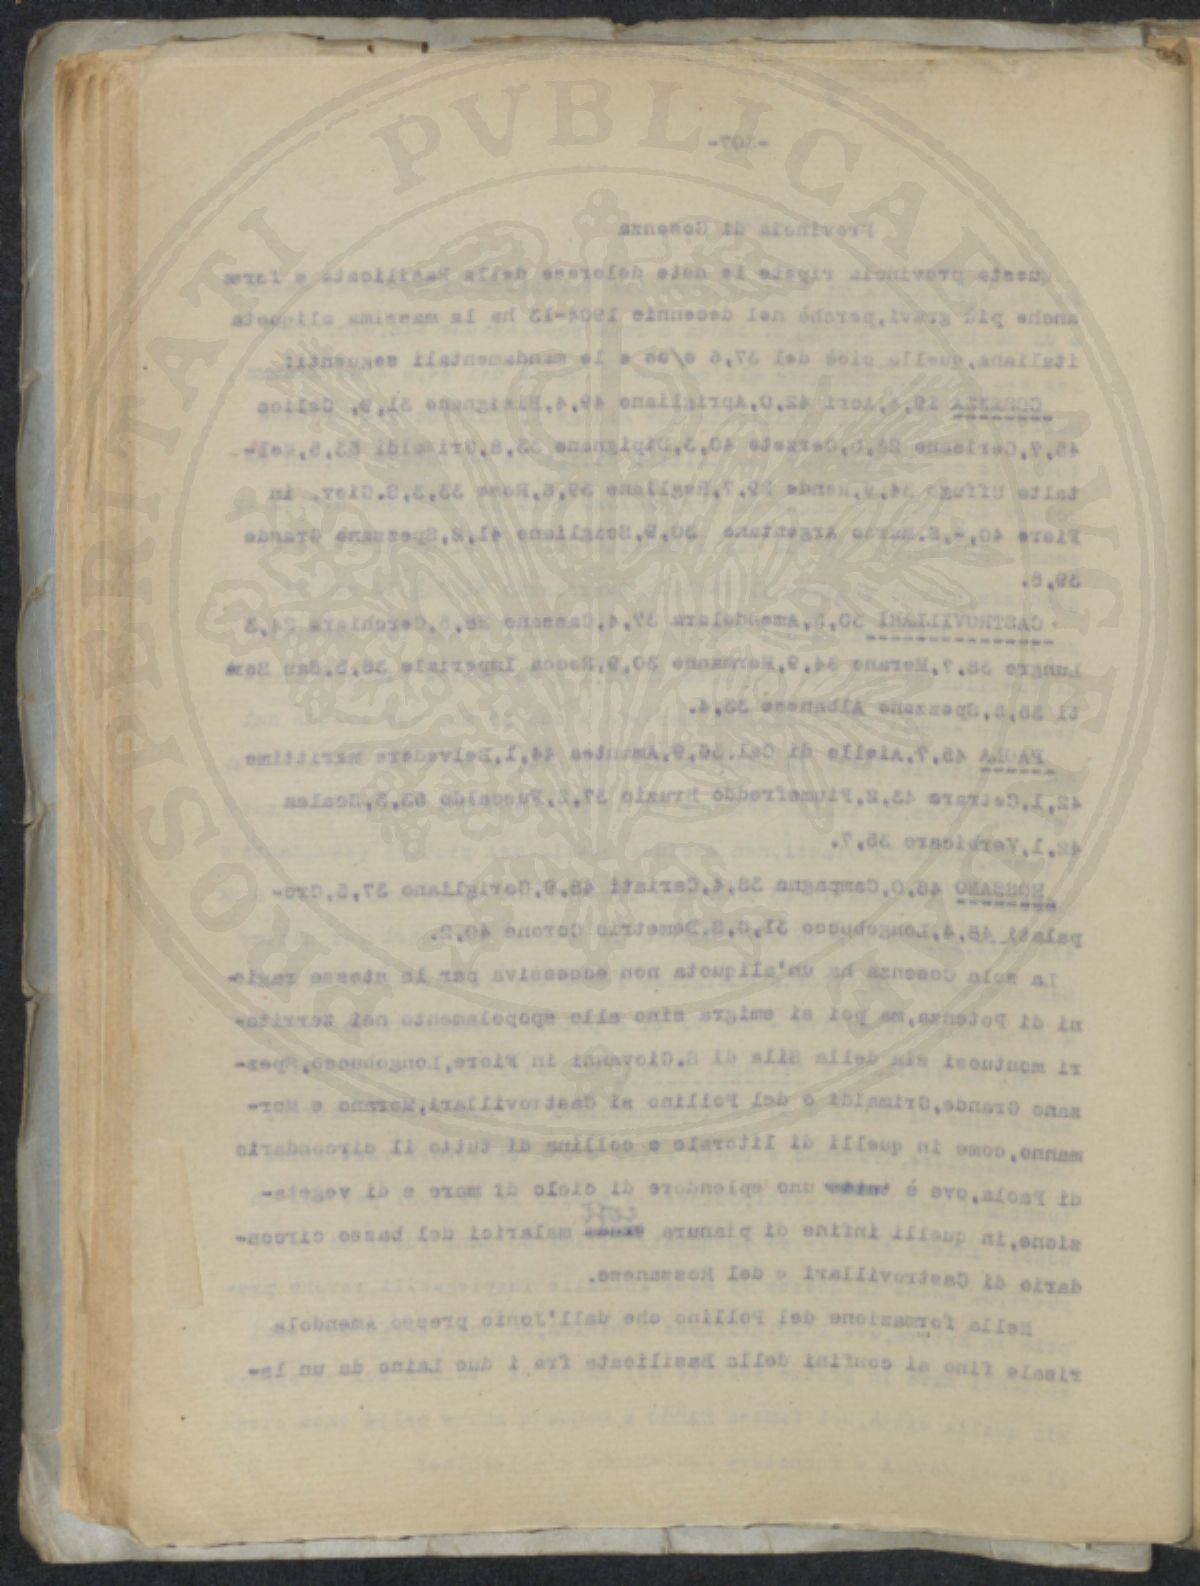 -107-
Provincia di Cosenza
Questa provincia ripete le note dolorose della Basilicata e forse
anche più gravi,perchè nel decennio 1904-13 ha la massima aliquota
italiana,quella cioè del 37,6 o/oo e le mandamentali seguenti:
COSENZA 19,4,Acri 42,0,Aprigliano 49,4,Bisignano 31,9, Celico
45,7,Cerisano 28,5,Cerzeto 40,3,Dipignano 33,8,Grimaldi 53,5,Mol-
talto Uffugo 34,9,Rende 29,7,Rogliano 39,6,Rose 33,3,S.Giov. in
Fiore 40,-,S.Marco Argentano 30,9,Scigliano 41,2,Spezzano Grande
39,8.
CASTROVILLARI 30,2,Amendolara 37,4,Cassano 26,5,Cerchiara 24,3
Lungro 38,7,Morano 34,9,Mormanno 30,9,Rocca Imperiale 36,5,San Sos
ti 36,5,Spezzano Albanese 33,4.
PAOLA 45,7,Aiello di Cal.36,9,Amantea 44,1,Belvedere marittimo
42,1,Cetraro 43,2,Fiumefreddo Bruzio 37,2,Fuscaldo 53,3,Scalea
42,1,Verbicaro 35,7.
ROSSANO 46,0,Campagna 38,4,Cariati 48,9,Corigliano 37,5,Cro-
palati 48,4,Longobucco 51,0,S.Demetrio Corone 40,2.
La sola Cosenza ha un'aliquota non eccessiva per le stesse ragio-
ni di Potenza,ma poi si emigra sino allo spopolamento nei territo-
ri montuosi sia della Sila di S.Giovanni in Fiore,Longobucco,Spez-
zano Grande,Grimaldi o del Pollino si Castrovillari,Morano e Mor-
manno,come in quelli di litorale e collina di tutto il circondario
di Paola,ove è uno splendore di cielo di mare e di vegeta-
zione,in quelli infine di pianura così malarici del basso circon-
dario di Castrovillari e del Rossanese.
Nella formazione del Pollino che dall'Jonio presso Amendola
risale fino ai confini della Basilicata fra i due Laino da un la-